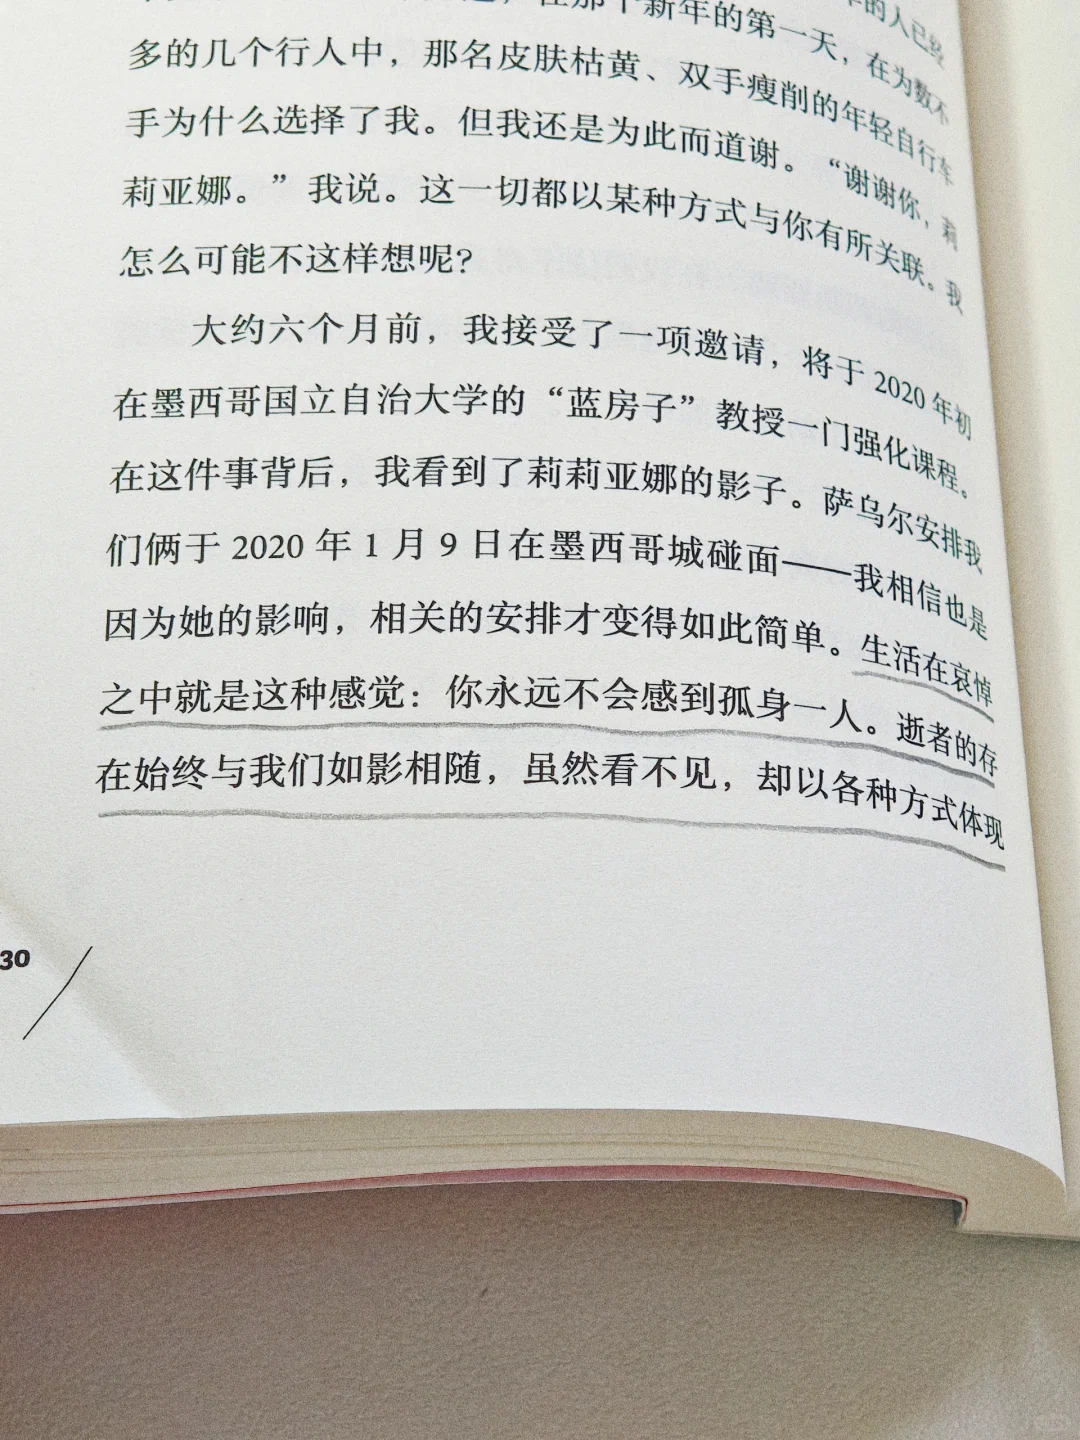 在那个新年的第一天，在为数不
多的几个行人中，那名皮肤枯黄、双手瘦削的年轻自行车
手为什么选择了我。但我还是为此而道谢。“谢谢你，莉
莉亚娜。”我说。这一切都以某种方式与你有所关联。我
怎么可能不这样想呢？
大约六个月前，我接受了一项邀请，将于 2020 年初
在墨西哥国立自治大学的“蓝房子”教授一门强化课程。
在这件事背后，我看到了莉莉亚娜的影子。萨乌尔安排我
们俩于 2020 年 1 月 9 日在墨西哥城碰面——我相信也是
因为她的影响，相关的安排才变得如此简单。生活在哀悼
之中就是这种感觉：你永远不会感到孤身一人。逝者的存
在始终与我们如影相随，虽然看不见，却以各种方式体现
30